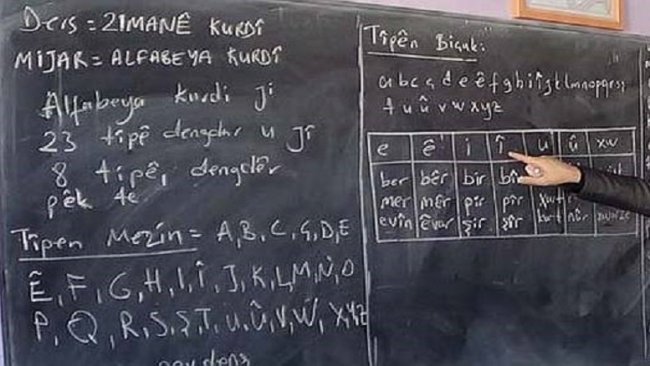 Ders = ZIMANÊ KURDÎ
MIJAR = ALFABEYA KURDÎ
Alfabeya kurdi ji
23 tîpê dengdar u ji
8 tîpê, dengdêr
pêk te
Tîpen Mezin = A, B, C, Ç, D, E
Ê, F, G, H, I, Î, J, K, L, M, N, O
P, Q, R, S, Ş, T, U, Û, V, W, X, Y, Z
Tîpên Biçuk:
a b c ç d e ê f g h i î j k l m n o p q r s ş
t u û v w x y z
e ê i î u û xw
ber bêr bir bîr
mer mêr pir pîr
evîn êvar şir şîr kurt nûr